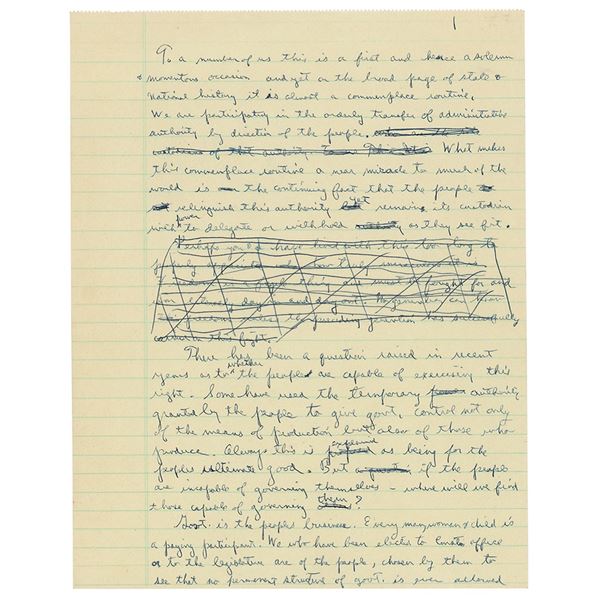 1
To a number of us this is a first and hence a solemn
& momentous occasion and yet on the broad page of state &
national history it is almost a commonplace routine.
We are participating in the orderly transfer of administrative
authority by direction of the people.
of that authority What makes
this commonplace routine a near miracle to much of the
world is the continuing fact that the people
relinquish this authority yet remain its custodian
with power to delegate or withhold as they see fit.
Perhaps you & I have lived with this too long to
must be fought for and
fight.
There has been a question raised in recent
years as to whether the people are capable of exercising this
right. Some have used the temporary authority
granted by the people to give govt. control not only
of the means of production but also of those who
produce. Always this is explained as being for the
peoples ultimate good. But if the people
are incapable of governing themselves - where will we find
those capable of governing them?
Govt. is the peoples business. Every man, women & child is
a paying participant. We who have been elected to office
or to the legislature are of the people, chosen by them to
see that no permanent structure of govt. is ever allowed